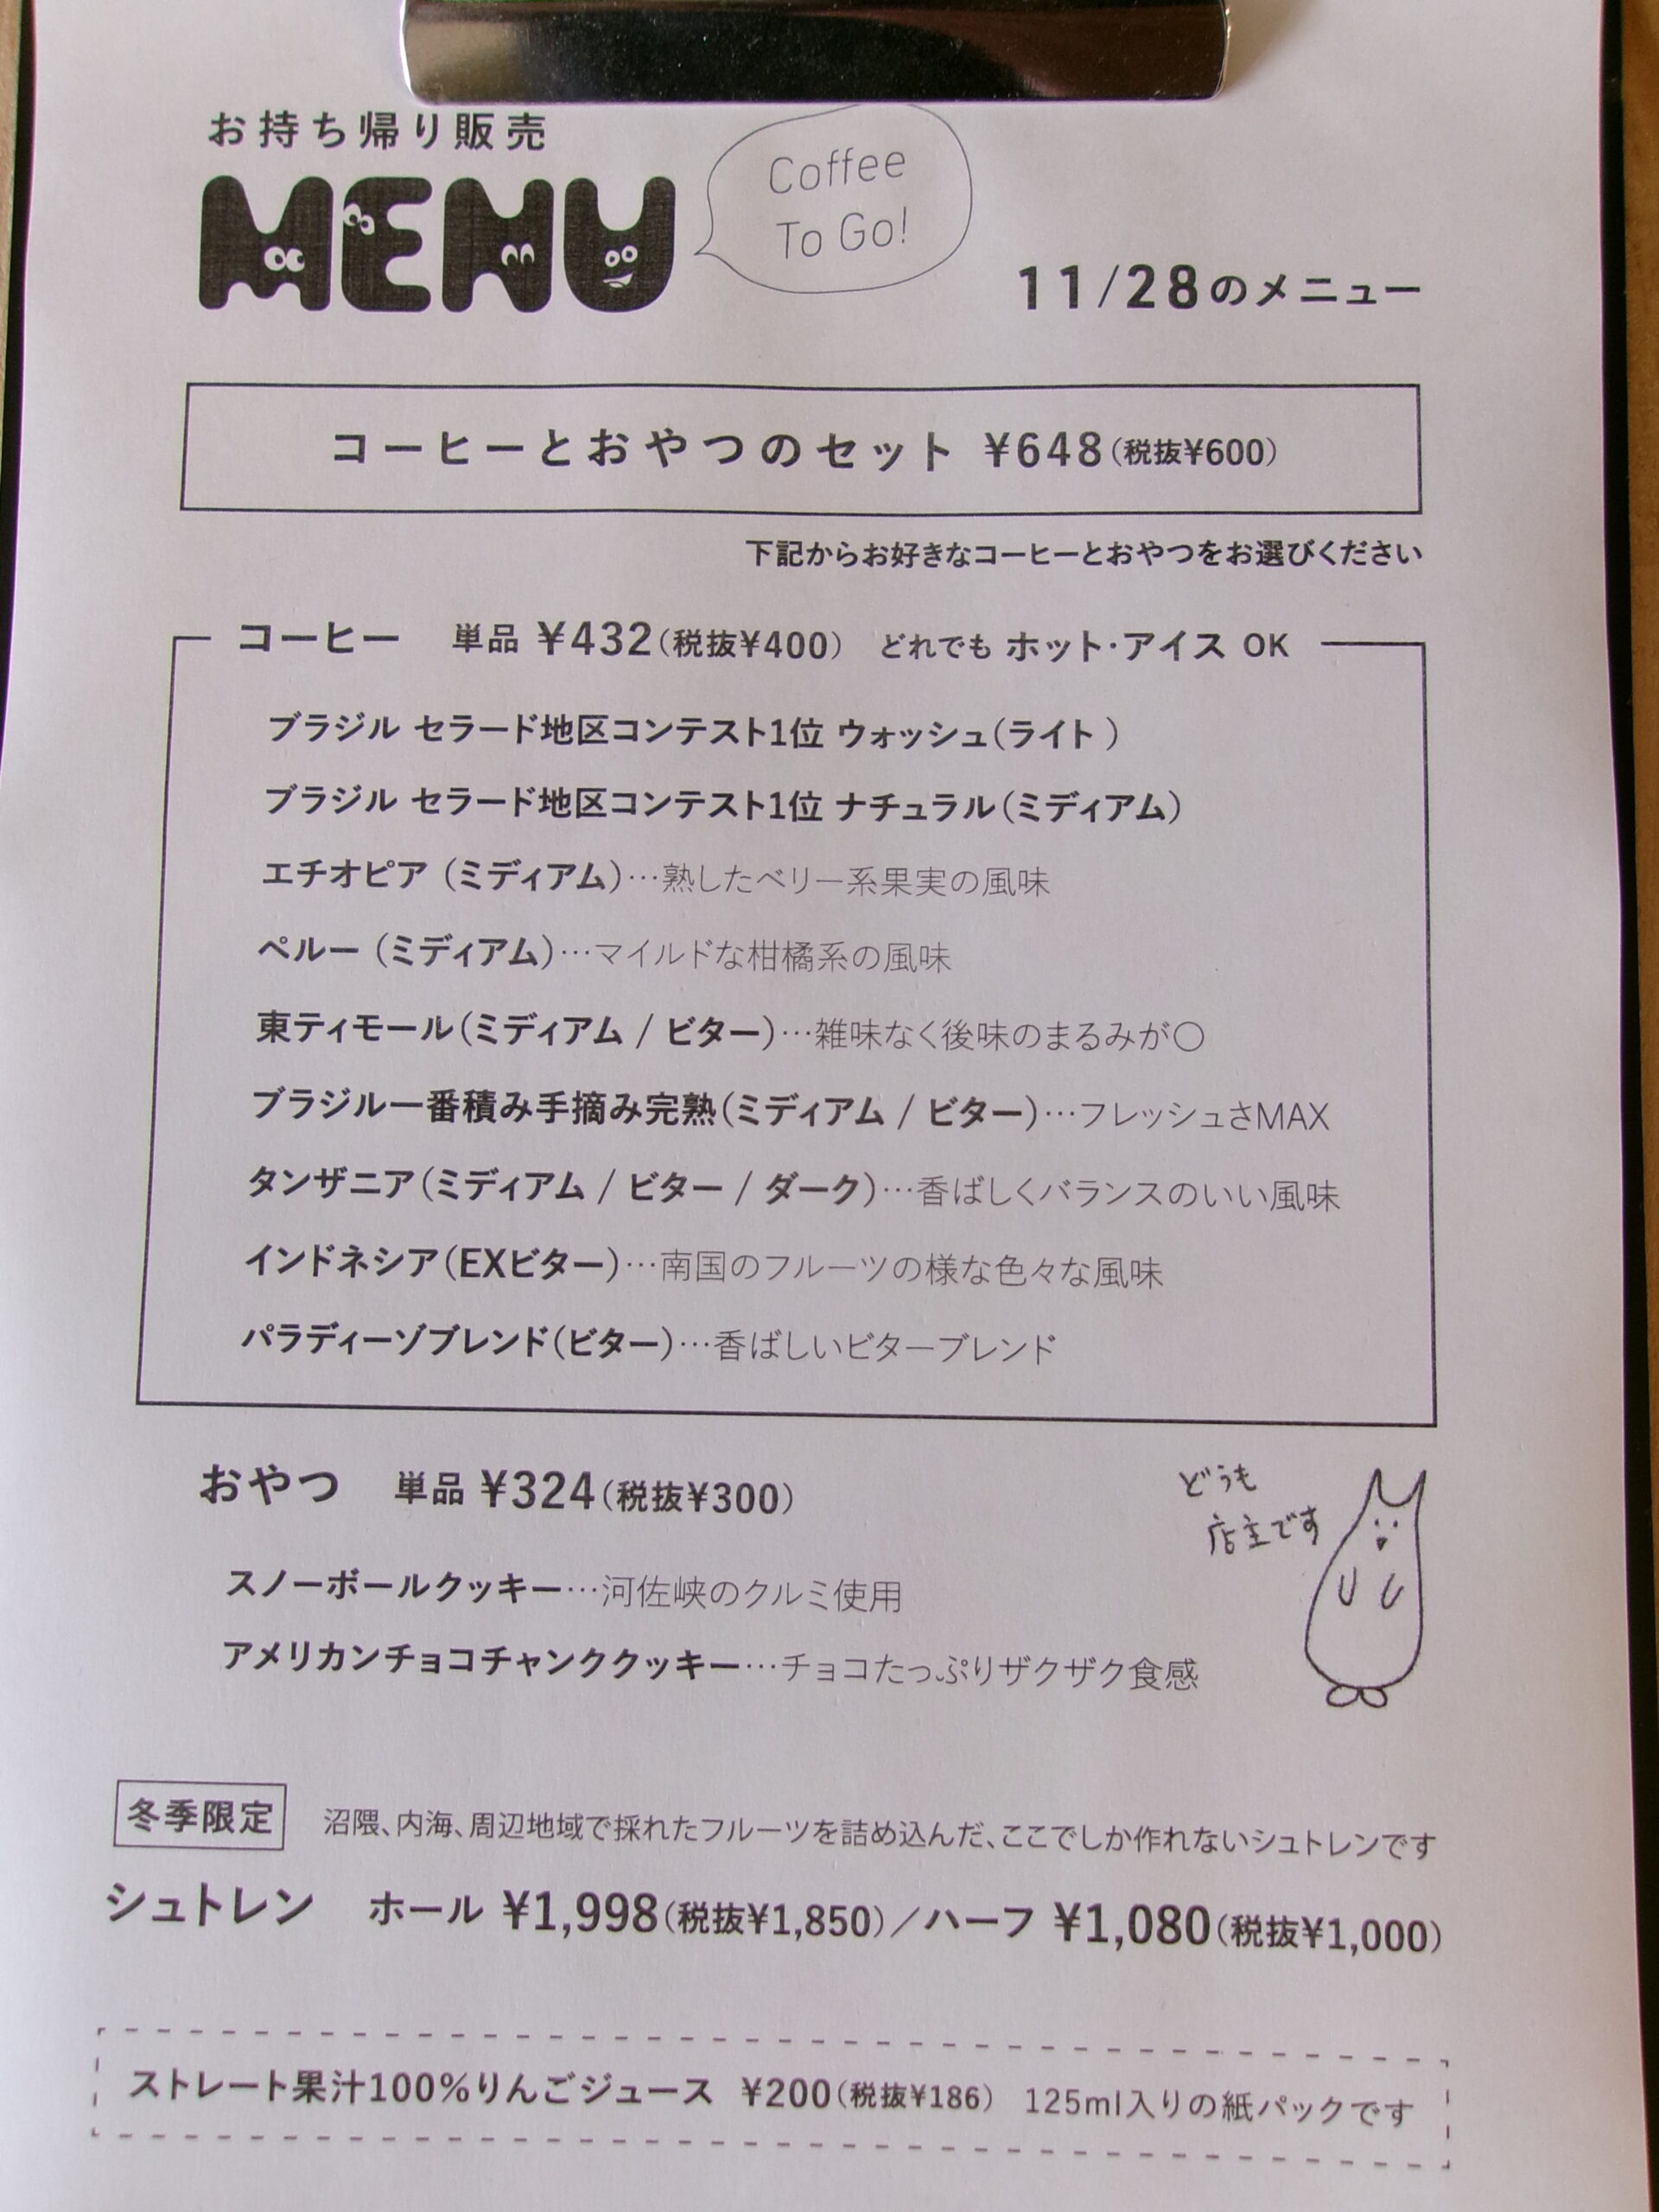 お持ち帰り販売
MENU
Coffee
To Go!
11/28のメニュー
コーヒーとおやつのセット ¥648(税抜¥600)
下記からお好きなコーヒーとおやつをお選びください
コーヒー 単品 ¥432(税抜¥400) どれでも ホット・アイス OK
ブラジル セラード地区コンテスト1位 ウォッシュ(ライト )
ブラジル セラード地区コンテスト1位 ナチュラル(ミディアム)
エチオピア (ミディアム)…熟したベリー系果実の風味
ペルー (ミディアム)…マイルドな柑橘系の風味
東ティモール(ミディアム / ビター)…雑味なく後味のまるみが〇
ブラジル一番積み手摘み完熟(ミディアム / ビター)…フレッシュさMAX
タンザニア(ミディアム / ビター / ダーク)…香ばしくバランスのいい風味
インドネシア(EXビター)…南国のフルーツの様な色々な風味
パラディーゾブレンド(ビター)…香ばしいビターブレンド
おやつ 単品 ¥324(税抜¥300)
どうも
店主です
スノーボールクッキー…河佐峡のクルミ使用
アメリカンチョコチャンククッキー…チョコたっぷりザクザク食感
冬季限定 沼隈、内海、周辺地域で採れたフルーツを詰め込んだ、ここでしか作れないシュトレンです
シュトレン ホール ¥1,998(税抜¥1,850)／ハーフ ¥1,080(税抜¥1,000)
ストレート果汁100%りんごジュース ¥200(税抜¥186) 125ml入りの紙パックです